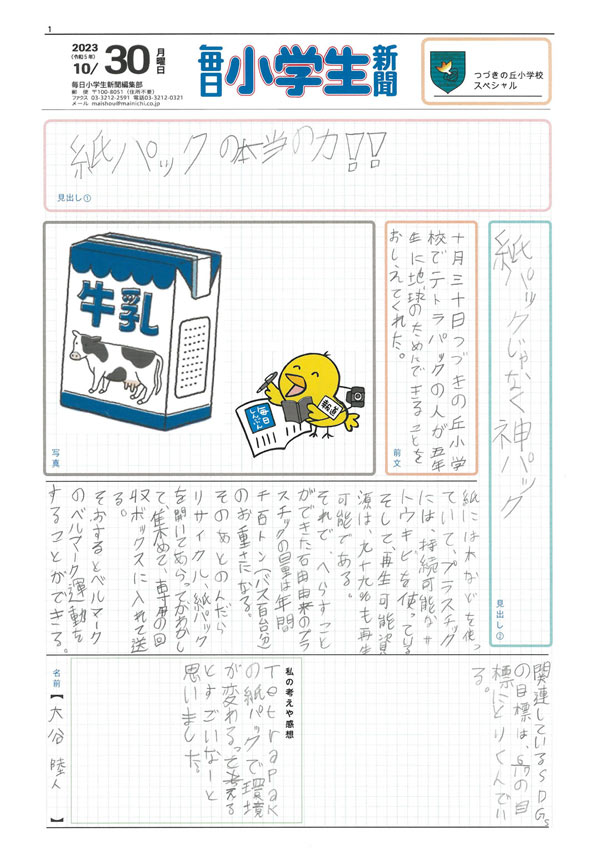 1
2023
(令和5年)
10/30
月曜日
毎日小学生新聞編集部
郵 便 〒100-8051(住所不要)
ファクス 03-3212-2591 電話03-3212-0321
メール maishou@mainichi.co.jp
毎日小学生新聞
つづきの丘小学校
スペシャル
紙パックの本当の力!!
見出し①
紙パックじゃなく神パック
見出し②
十月三十日つづきの丘小学
校でテトラパックの人が五年
生に地球のためにできることを
おしえてくれた。
前文
牛乳
報道
毎日
しんぶん
写真
紙には木などを使っ
ていて、プラスチック
には、持続可能なサ
トウキビを使っている
そして再生可能資
源は、九十九%も再生
可能である。
それで、へらすこと
ができた石油由来のプラ
スチックの量は年間
千百トン(バス百台分)
のお重さになる。
そのあとのんだら
リサイクル、紙パック
を開いてあらってかわかし
て集めて、専用の回
収ボックスに入れて送
る。
そおするとベルマーク
のベルマーク運動を
することができる。
関連しているSDGs
の目標は、の目
標にとりくんでい
る。
私の考えや感想
Tetrapak
の紙パックで環境
が変わるって考える
とすごいなーと
思いました。
名前【大谷 陸人】